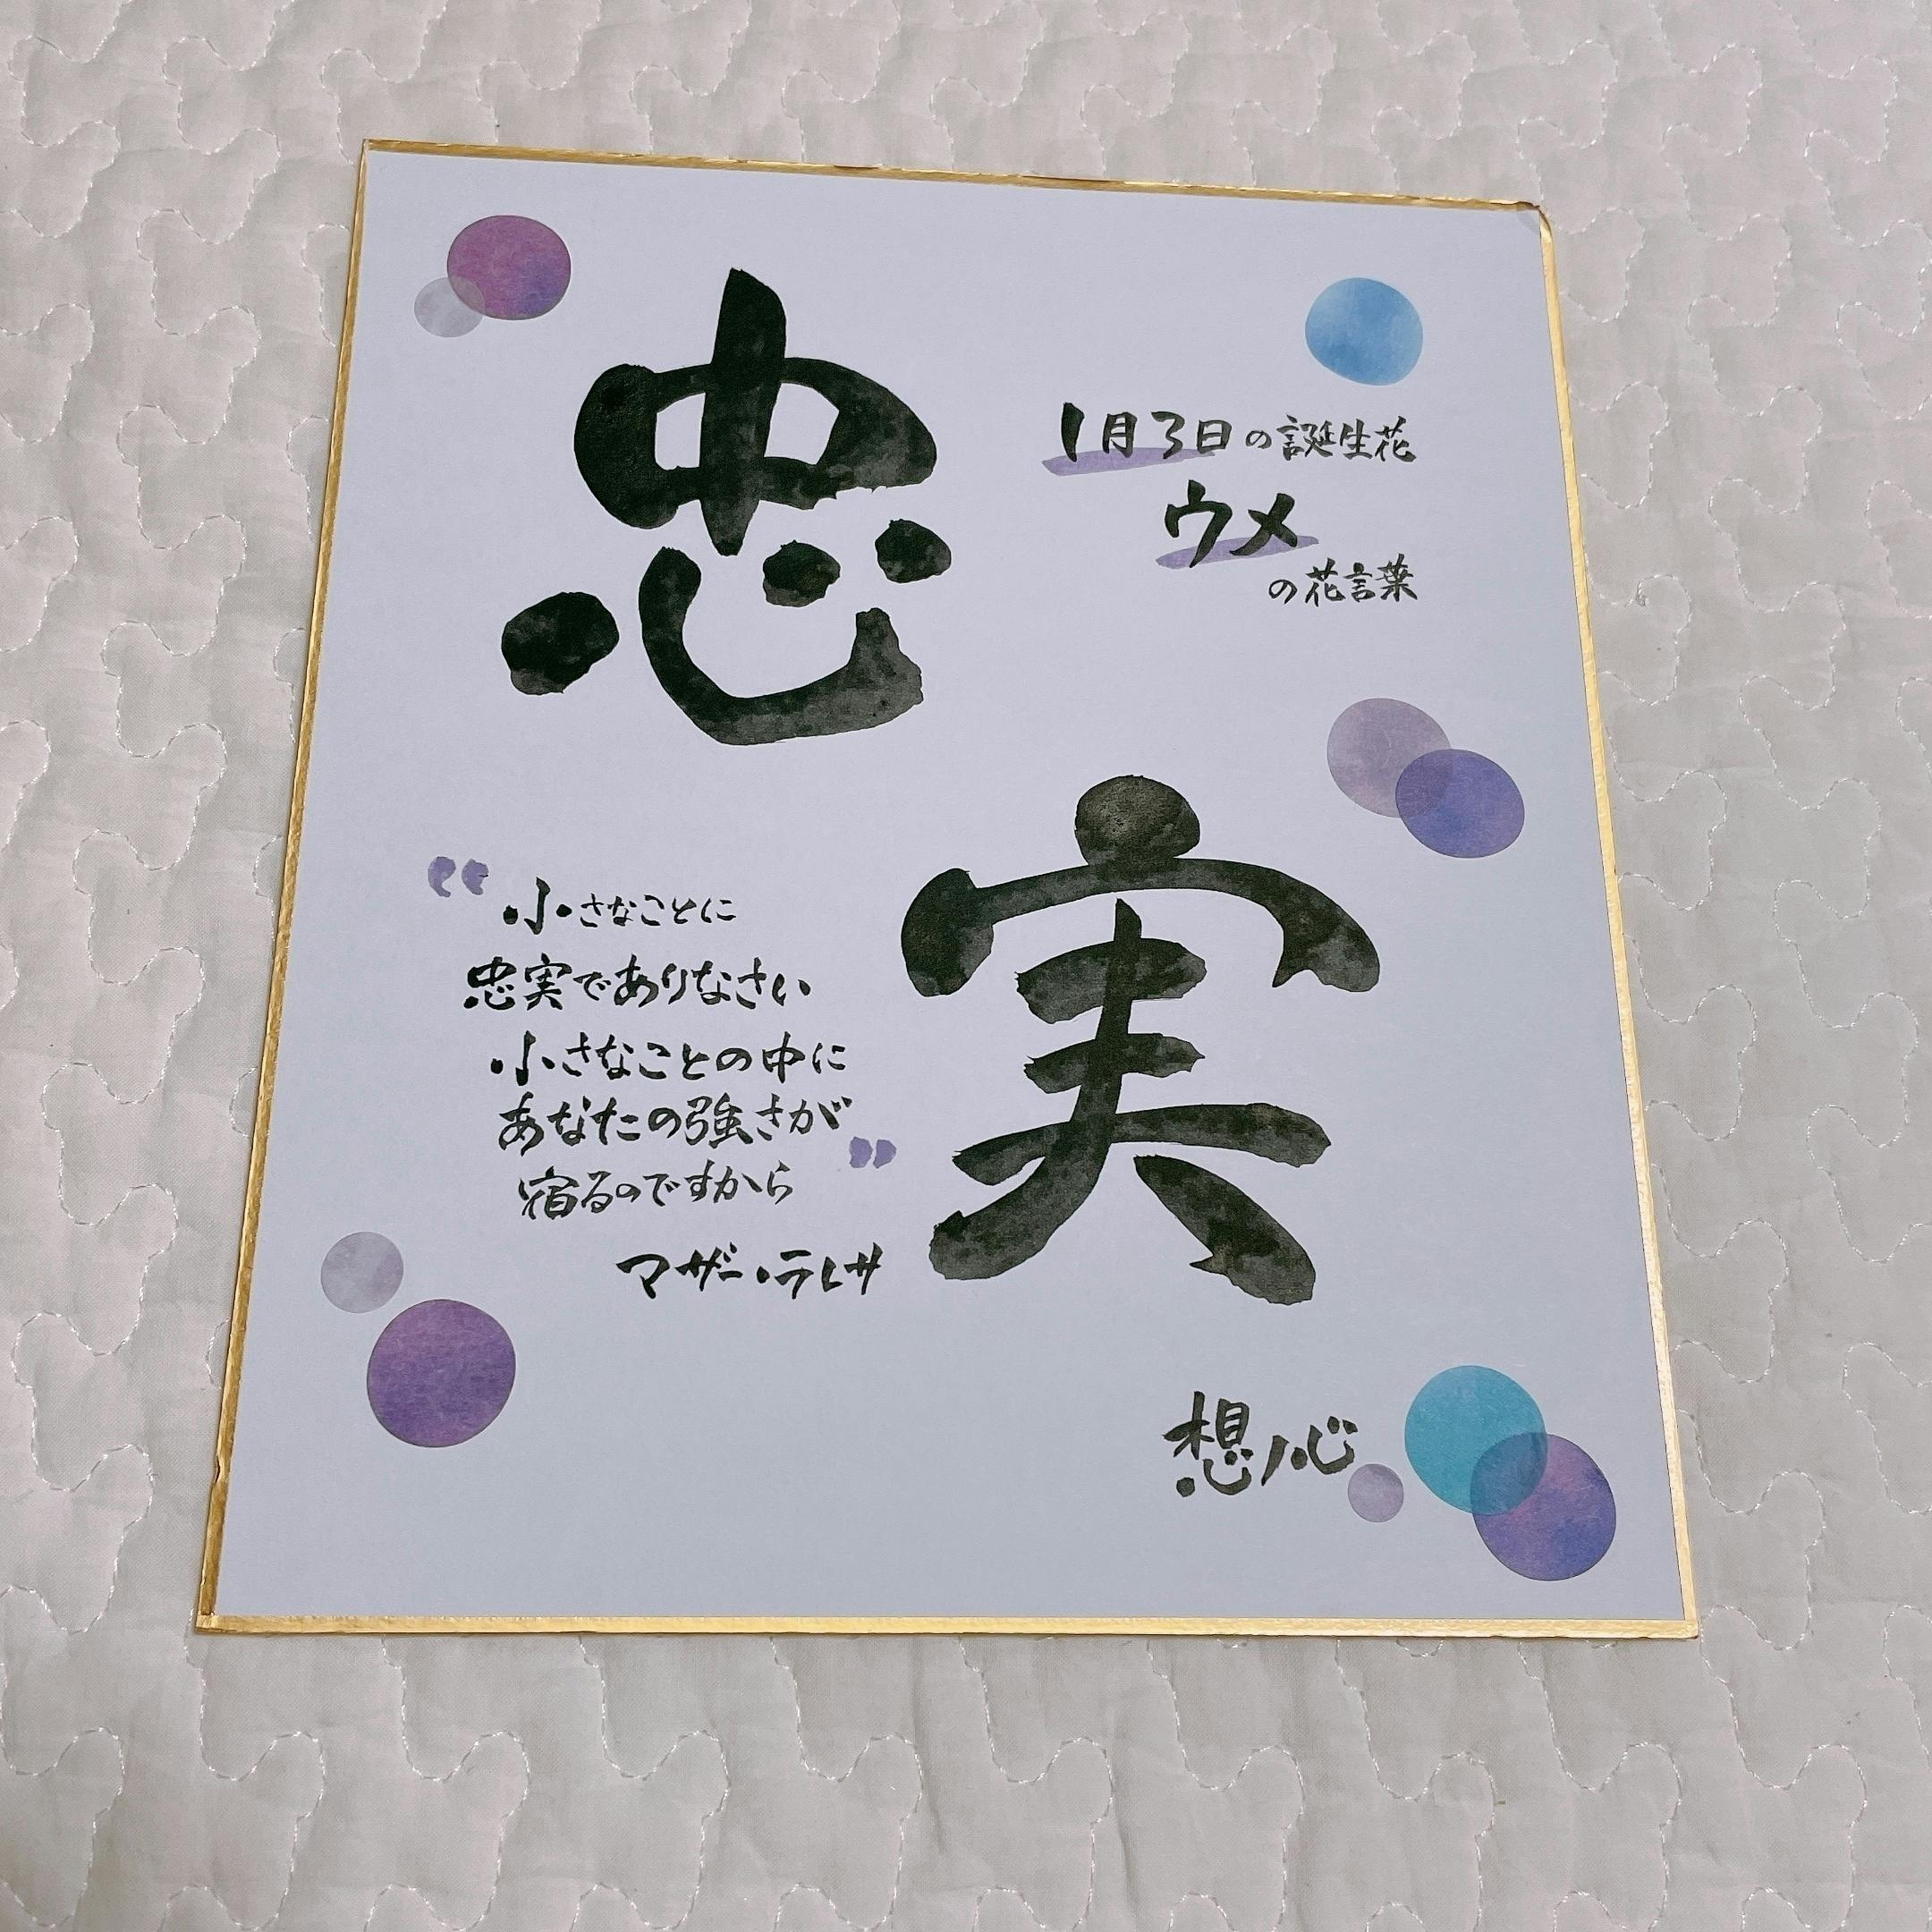 忠実
1月3日の誕生花
ウメ
の花言葉
“小さなことに
忠実でありなさい
小さなことの中に
あなたの強さが
宿るのですから”
マザー・テレサ
想ノ心